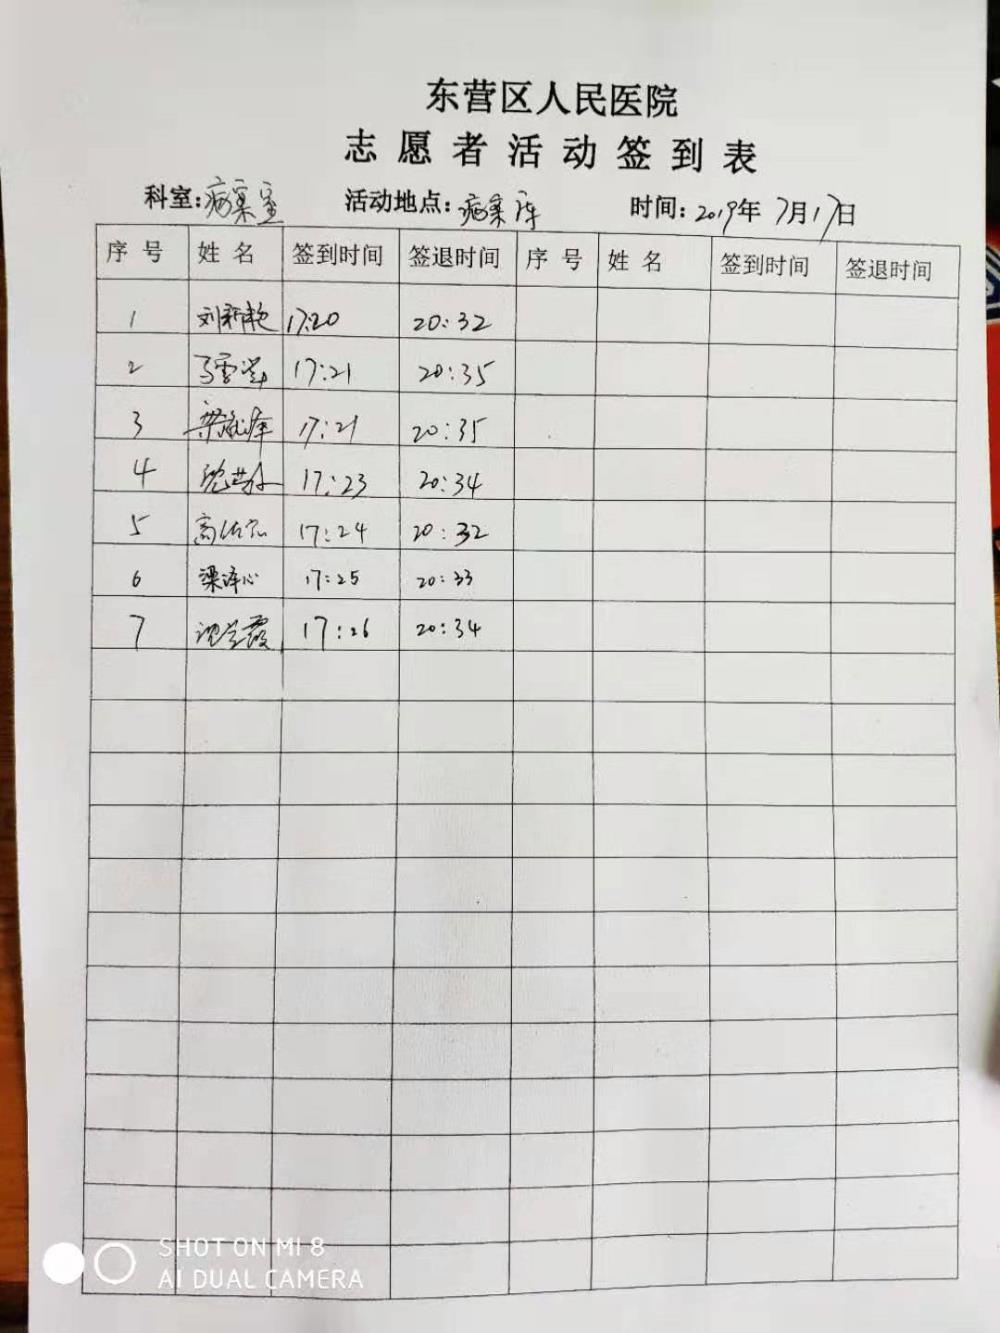 东营区人民医院
志愿者活动签到表
科室:病案室 活动地点:病案库 时间:2019年7月17日
序号 姓名 签到时间 签退时间 序号 姓名 签到时间 签退时间
1 17:20 20:32
2 17:21 20:35
3 17:21 20:35
4 17:23 20:34
5 17:24 20:32
6 梁泽心 17:25 20:33
7 17:26 20:34
SHOT ON MI 8
AI DUAL CAMERA